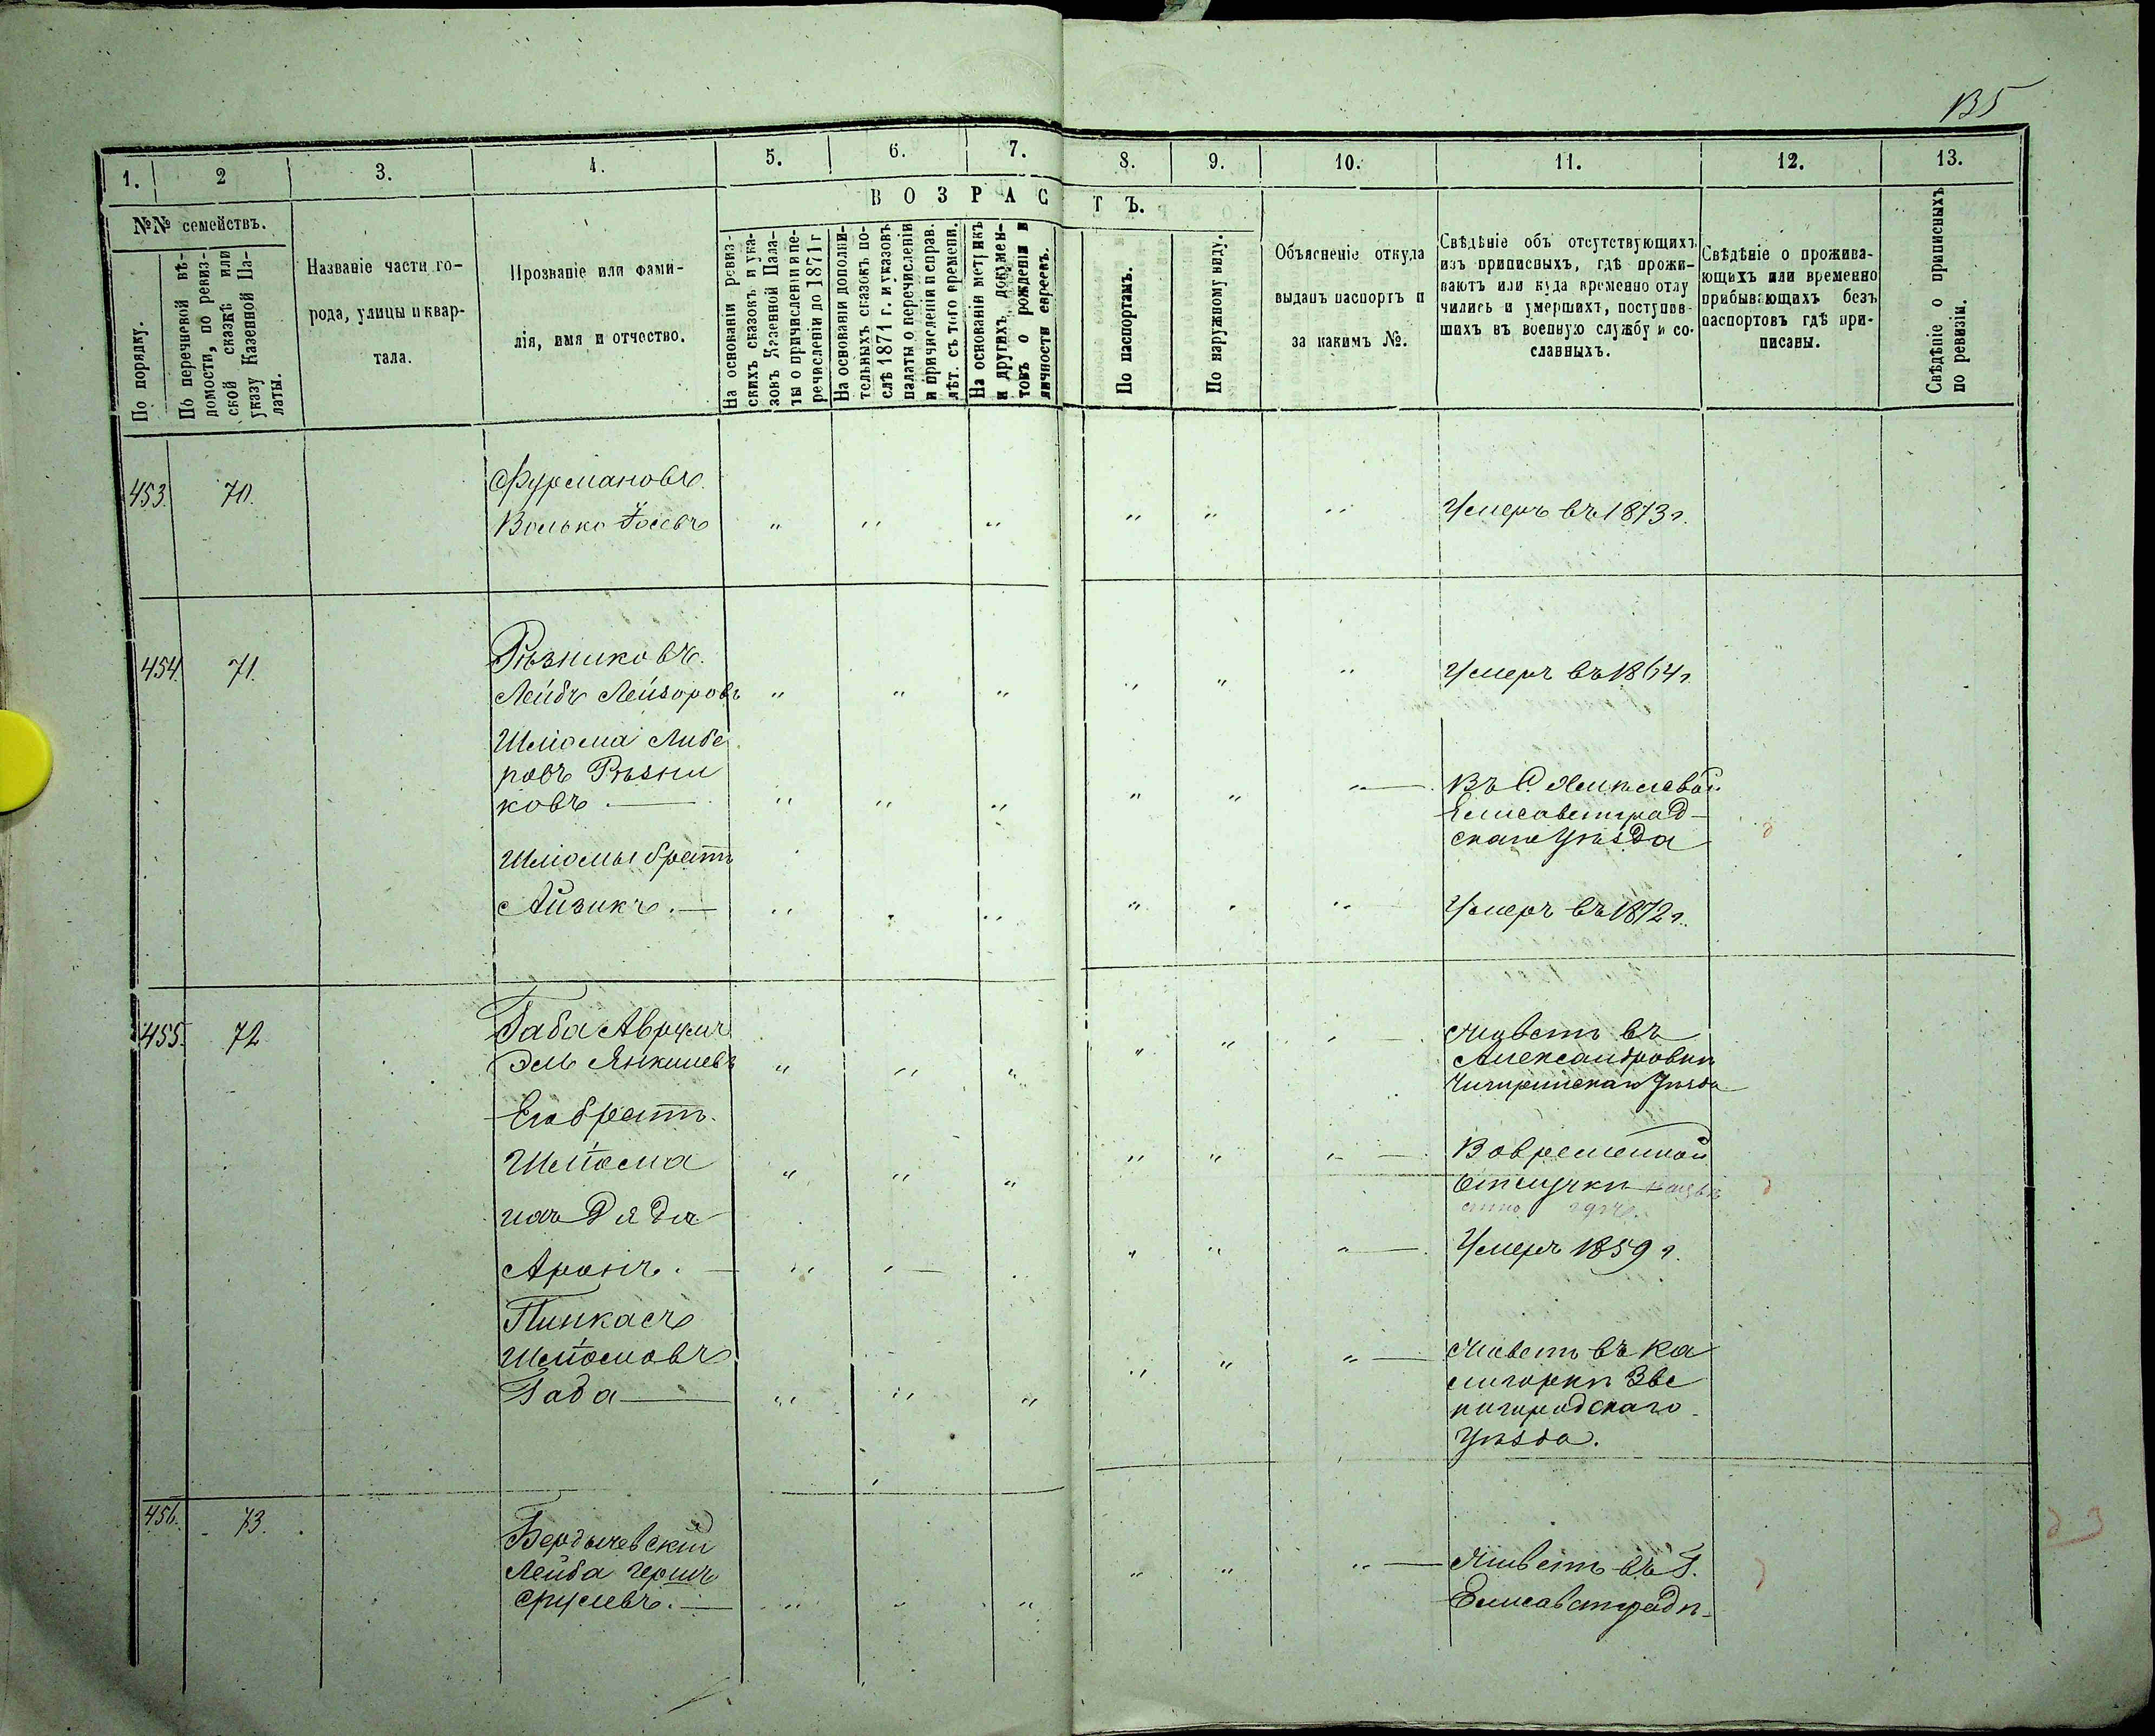 135
1.
2
3.
4.
5.
6.
7.
8.
9.
10.
11.
12.
13.
№№ семействъ.
По порядку.
По перечневой вѣ-
домости, по ревиз-
ской сказкѣ или
указу Казенной Па-
латы.
Названіе части го-
рода, улицы и квар-
тала.
Прозваніе или фами-
лія, имя и отчество.
ВОЗРАСТЪ.
На основаніи ревиз-
скихъ сказокъ и ука-
зовъ Казенной Пала-
ты о причисленіи и пе-
речисленіи до 1871 г
На основаніи дополни-
тельныхъ сказокъ по-
слѣ 1871 г. и указовъ
палаты о перечисленіи
и причисленіи и справ.
лѣт. съ того времени.
На основаніи метрикъ
и другихъ докумен-
товъ о рожденіи и
личности евреевъ.
По паспортамъ.
По наружному виду.
Объясненіе откуда
выданъ паспортъ и
за какимъ №.
Свѣдѣніе объ отсутствующихъ
изъ приписныхъ, гдѣ прожи-
ваютъ или куда временно отлу
чились и умершихъ, поступив-
шихъ въ военную службу и со-
сланныхъ.
Свѣдѣніе о прожива-
ющихъ или временно
прибывающихъ безъ
паспортовъ гдѣ при-
писаны.
Свѣдѣніе о приписныхъ
по ревизіи.
453. 70.
Фурмановъ
Волько Іосевъ " " " " " " Умеръ въ 1873 г.
454. 71.
Рѣзниковъ.
Лейбъ Лейзоровъ " " " " " " Умеръ въ 1864 г.
Шліома Либе
ровъ Рѣзни
ковъ. — " " " " " " —
Въ С.
Елисаветград-
скаго Уѣзда
Шліомы братъ
Айзикъ. — " " " " " Умеръ въ 1872 г.
455. 72
Габа Аврумъ
Эль Янкелевъ " " " " "
Живетъ въ
Александровкѣ
Чигиринскаго Уѣзда
Его братъ.
Шліома " " " " " " —
Во временной
Отлучкѣ
ихъ Дядя
Аронъ. — " " " " " — Умеръ 1859 г.
Пинкасъ
Шліомовъ
Габа — " " " " " " —
Живетъ въ Ка
лигоркѣ Зве
нигородскаго
Уѣзда.
456. 73.
Бердичевскій
Лейба Герш
Срулевъ. — " " " " " " —
Живетъ въ Г.
Елисаветградѣ.